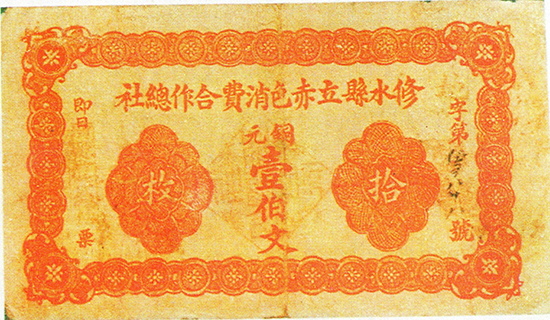 修水縣立赤色消費合作總社
字第號
銅元
拾枚
壹伯文
即日票